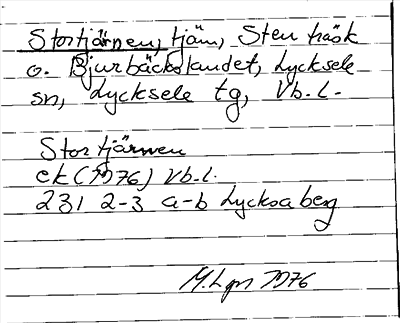 Stortjärnen, tjärn, Stenträsk
o. Bjurbäckslandet, Lycksele
sn, Lycksele tg, Vb.l.
Stortjärnen
ek (1976) Vb.l.
231 2-3 a-b Lycksaberg
M. Lgn 1976